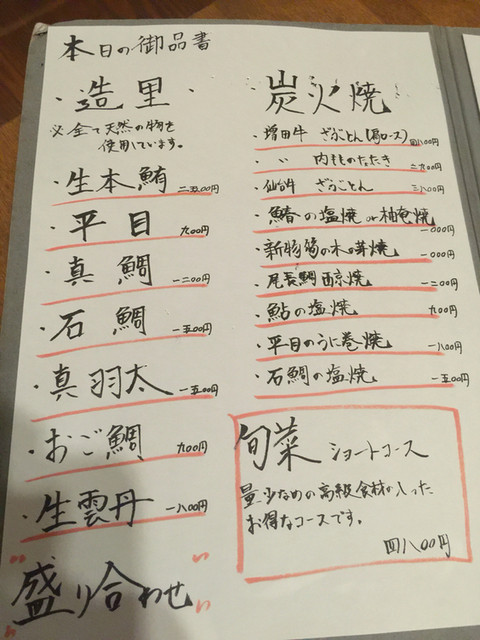 本日の御品書
・造里・
※全て天然の物を
使用しています。
・生本鮪 二五〇〇円
・平目 九〇〇円
・真鯛 一二〇〇円
・石鯛 一五〇〇円
・真羽太 一五〇〇円
・おご鯛 九〇〇円
・生雲丹 一八〇〇円
盛り合わせ
・炭火焼
・増田牛 ざぶとん(肩ロース) 四八〇〇円
・〃 内もものたたき 二九〇〇円
・仙台牛 ざぶとん 三八〇〇円
・鰆の塩焼or柚庵焼 一〇〇〇円
・新物筍の木の芽焼 一〇〇〇円
・尾長鯛西京焼 一二〇〇円
・鮎の塩焼 九〇〇円
・平目のうに巻焼 一八〇〇円
・石鯛の塩焼 一五〇〇円
旬菜 ショートコース
量少なめの高級食材が入った
お得なコースです。
四八〇〇円